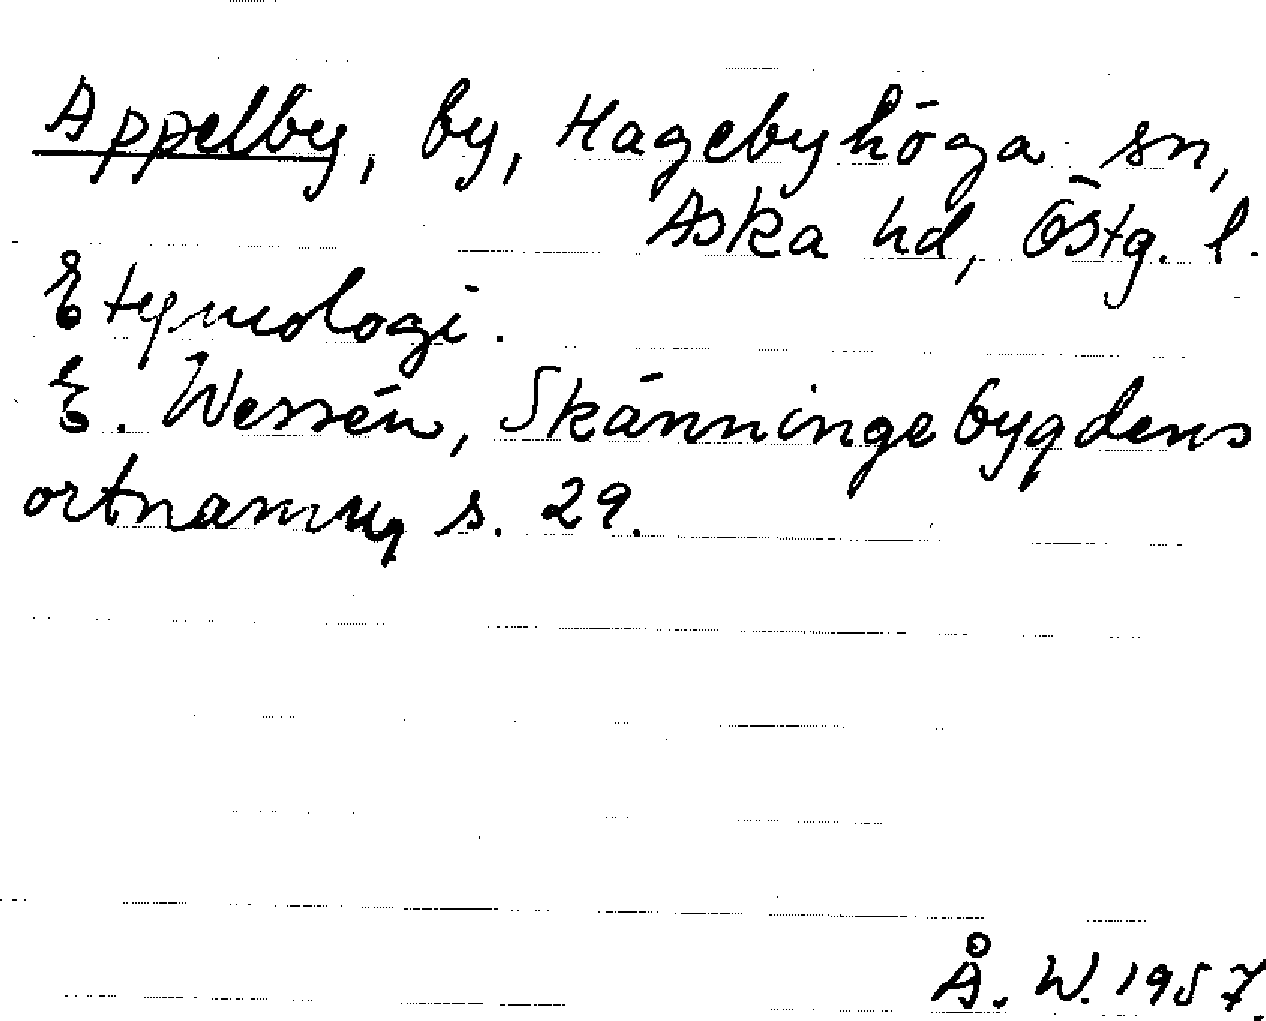 Appelby, by, Hagebyhöga sn,
Aska hd, Östg. l.
Etymologi.
E. Wessén, Skänningebygdens
ortnamn, s. 29.
Å. W. 1957.